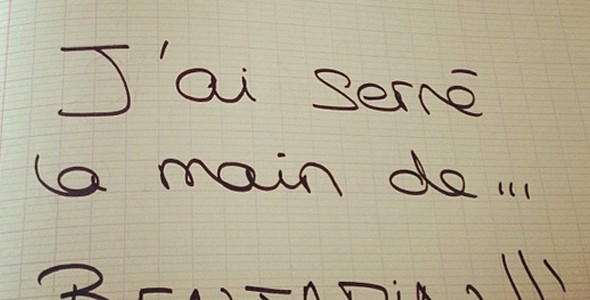 J'ai serré
la main de...